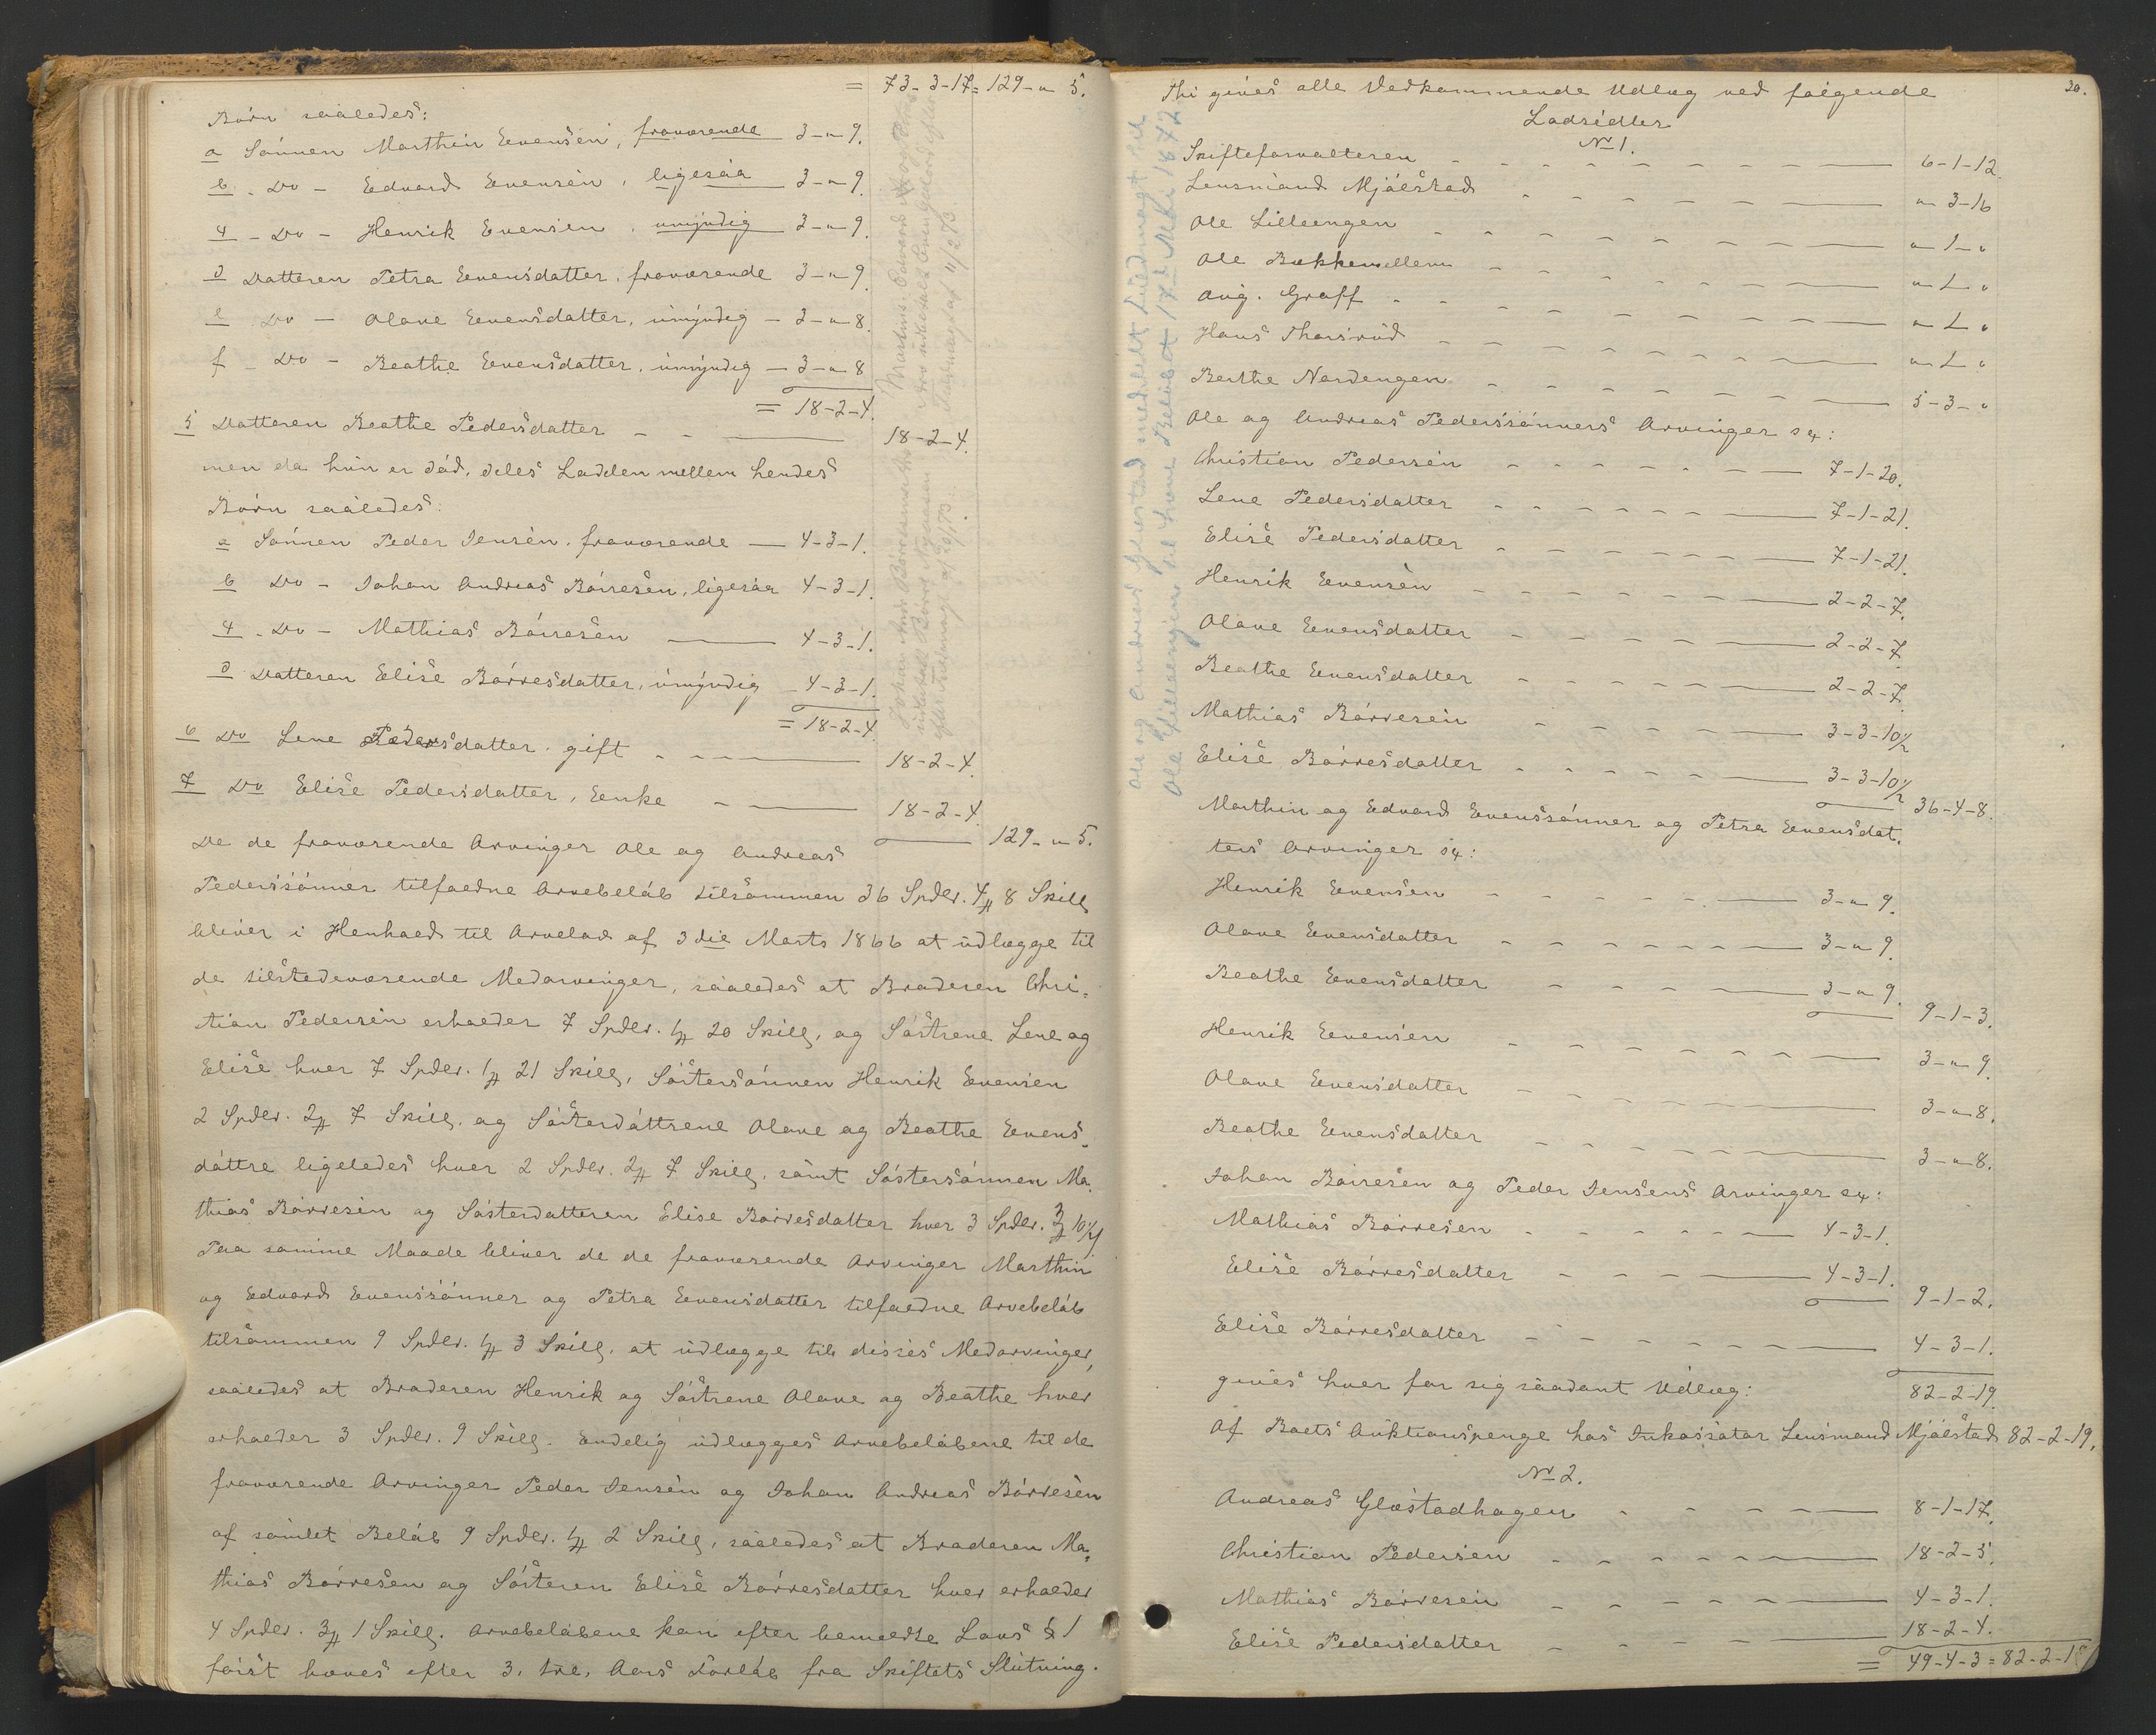 = 73-3-17 = 129-"-5.
Børn saaledes:
a Sønnen Marthin Evensen, fraværende 3-"-9.
b - Do - Edvard Evensen, ligesaa 3-"-9
c - Do - Henrik Evensen, umyndig 3-"-9.
d Datteren Petra Evensdatter, fraværende 3-"-9
e Do - Olave Evensdatter, umyndig - 3-"-8.
f - Do - Beathe Evensdatter, umyndig - 3-"-8
= 18-2-4.
5 Datteren Beathe Pedersdatter - - 18-2-4.
men da hun er død, deles Lodden mellem hendes
Børn saaledes:
a Sønnen Peder Jensen, fraværende - 4-3-1.
b Do - Johan Andreas Børresen, ligesaa 4-3-1.
c - Do - Mathias Børresen 4-3-1.
d Datteren Elise Børresdatter, umyndig - 4-3-1.
= 18-2-4.
6 Do Lene Pedersdatter, gift - - 18-2-4.
7 Do Elise Pedersdatter, Enke - 18-2-4.
129-"-5.
De de fraværende Arvinger Ole og Andreas
Pederssønner tilfaldne Arvebeløb tilsammen 36 Spdlr. 4 # 8 Skill.
bliver i Henhold til Arvelov af 3die Marts 1866 at udlægge til
de tilstedeværende Medarvinger, saaledes at Broderen Chri-
stian Pedersen erholder 7 Spdlr. 1 # 20 Skill, og Søstrene Lene og
Elise hver 7 Spdlr. 1 # 21 Skill, Søstersønnen Henrik Evensen
2 Spdlr. 2 # 7 Skill. og Søsterdøttrene Olave og Beathe Evens-
døttre ligeledes hver 2 Spdlr. 2 # 7 Skill. samt Søstersønnen Ma-
thias Børresen og Søsterdatteren Elise Børresdatter hver 3 Spdlr. 3 # 10½
Paa samme Maade bliver de de fraværende Arvinger Marthin
og Edvard Evenssønner og Petra Evensdatter tilfaldne Arvebeløb
tilsammen 9 Spdlr. 1 # 3 Skill. at udlægge til disses Medarvinger,
saaledes at Broderen Henrik og Søstrene Olave og Beathe hver
erholder 3 Spdlr. 9 Skill. Endelig udlægges Arvebeløbene til de
fraværende Arvinger Peder Jensen og Johan Andreas Børresen
af samlet Beløb 9 Spdlr. 1 # 2 Skill, saaledes at Broderen Ma-
thias Børresen og Søsteren Elise Børresdatter hver erholder
4 Spdlr. 3 # 1 Skill. Arvebeløbene kan efter bemeldte Lovs § 1
først hæves efter 3, tre, Aars Forløb fra Skiftets Slutning.
20.
Thi gives alle Vedkommende Udlæg ved følgende
Lodsedler
No 1.
Skifteforvalteren 6-1-12.
Lensmand Mjølstad "-3-16
Ole Lilleengen "-1-"
Ole Bækkemellem "-1-"
Aug. Graff "-1-"
Hans Thorsrud "-1-"
Berthe Nordengen 5-3-"
Ole og Andreas Pederssønners Arvinger sc:
Christian Pedersen 7-1-20.
Lene Pedersdatter 7-1-21.
Elise Pedersdatter 7-1-21.
Henrik Evensen 2-2-7.
Olave Evensdatter 2-2-7
Beathe Evensdatter 2-2-7.
Mathias Børresen 3-3-10½
Elise Børresdatter 3-3-10½
36-4-8.
Marthin og Edvard Evenssønner og Petra Evensdat-
ters Arvinger sc:
Henrik Evensen 3-"-9.
Olave Evensdatter 3-"-9.
Beathe Evensdatter 3-"-9.
9-1-3.
Henrik Evensen 3-"-9.
Olave Evensdatter 3-"-8.
Beathe Evensdatter 3-"-8.
Johan Børresen og Peder Jensens Arvinger sc:
Mathias Børresen 4-3-1.
Elise Børresdatter 4-3-1.
9-1-2.
Elise Børresdatter 4-3-1.
gives hver for sig saadant Udlæg: 82-2-19.
Af Boets Auktionspenge hos Inkassator Lensmand Mjølstad 82-2-19.
No 2.
Andreas Glæstadhagen 8-1-17.
Christian Pedersen 18-2-5.
Mathias Børresen 4-3-1.
Elise Pedersdatter 18-2-4.
= 49-4-3 = 82-2-19